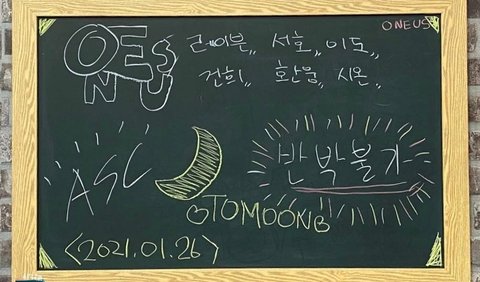 ONEUS
ONEUS
레이븐,, 서호,, 이도,,
건희,, 환웅,, 시온,,
ASC
반박불가
TOMOON
<2021.01.26>